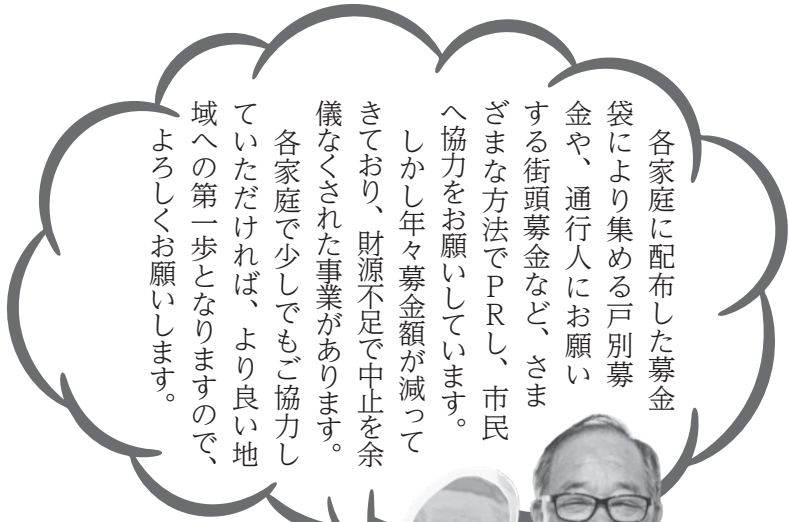 各家庭に配布した募金
袋により集める戸別募
金や、通行人にお願い
する街頭募金など、さま
ざまな方法でＰＲし、市民
へ協力をお願いしています。
しかし年々募金額が減って
きており、財源不足で中止を余
儀なくされた事業があります。
各家庭で少しでもご協力し
ていただければ、より良い地
域への第一歩となりますので、
よろしくお願いします。